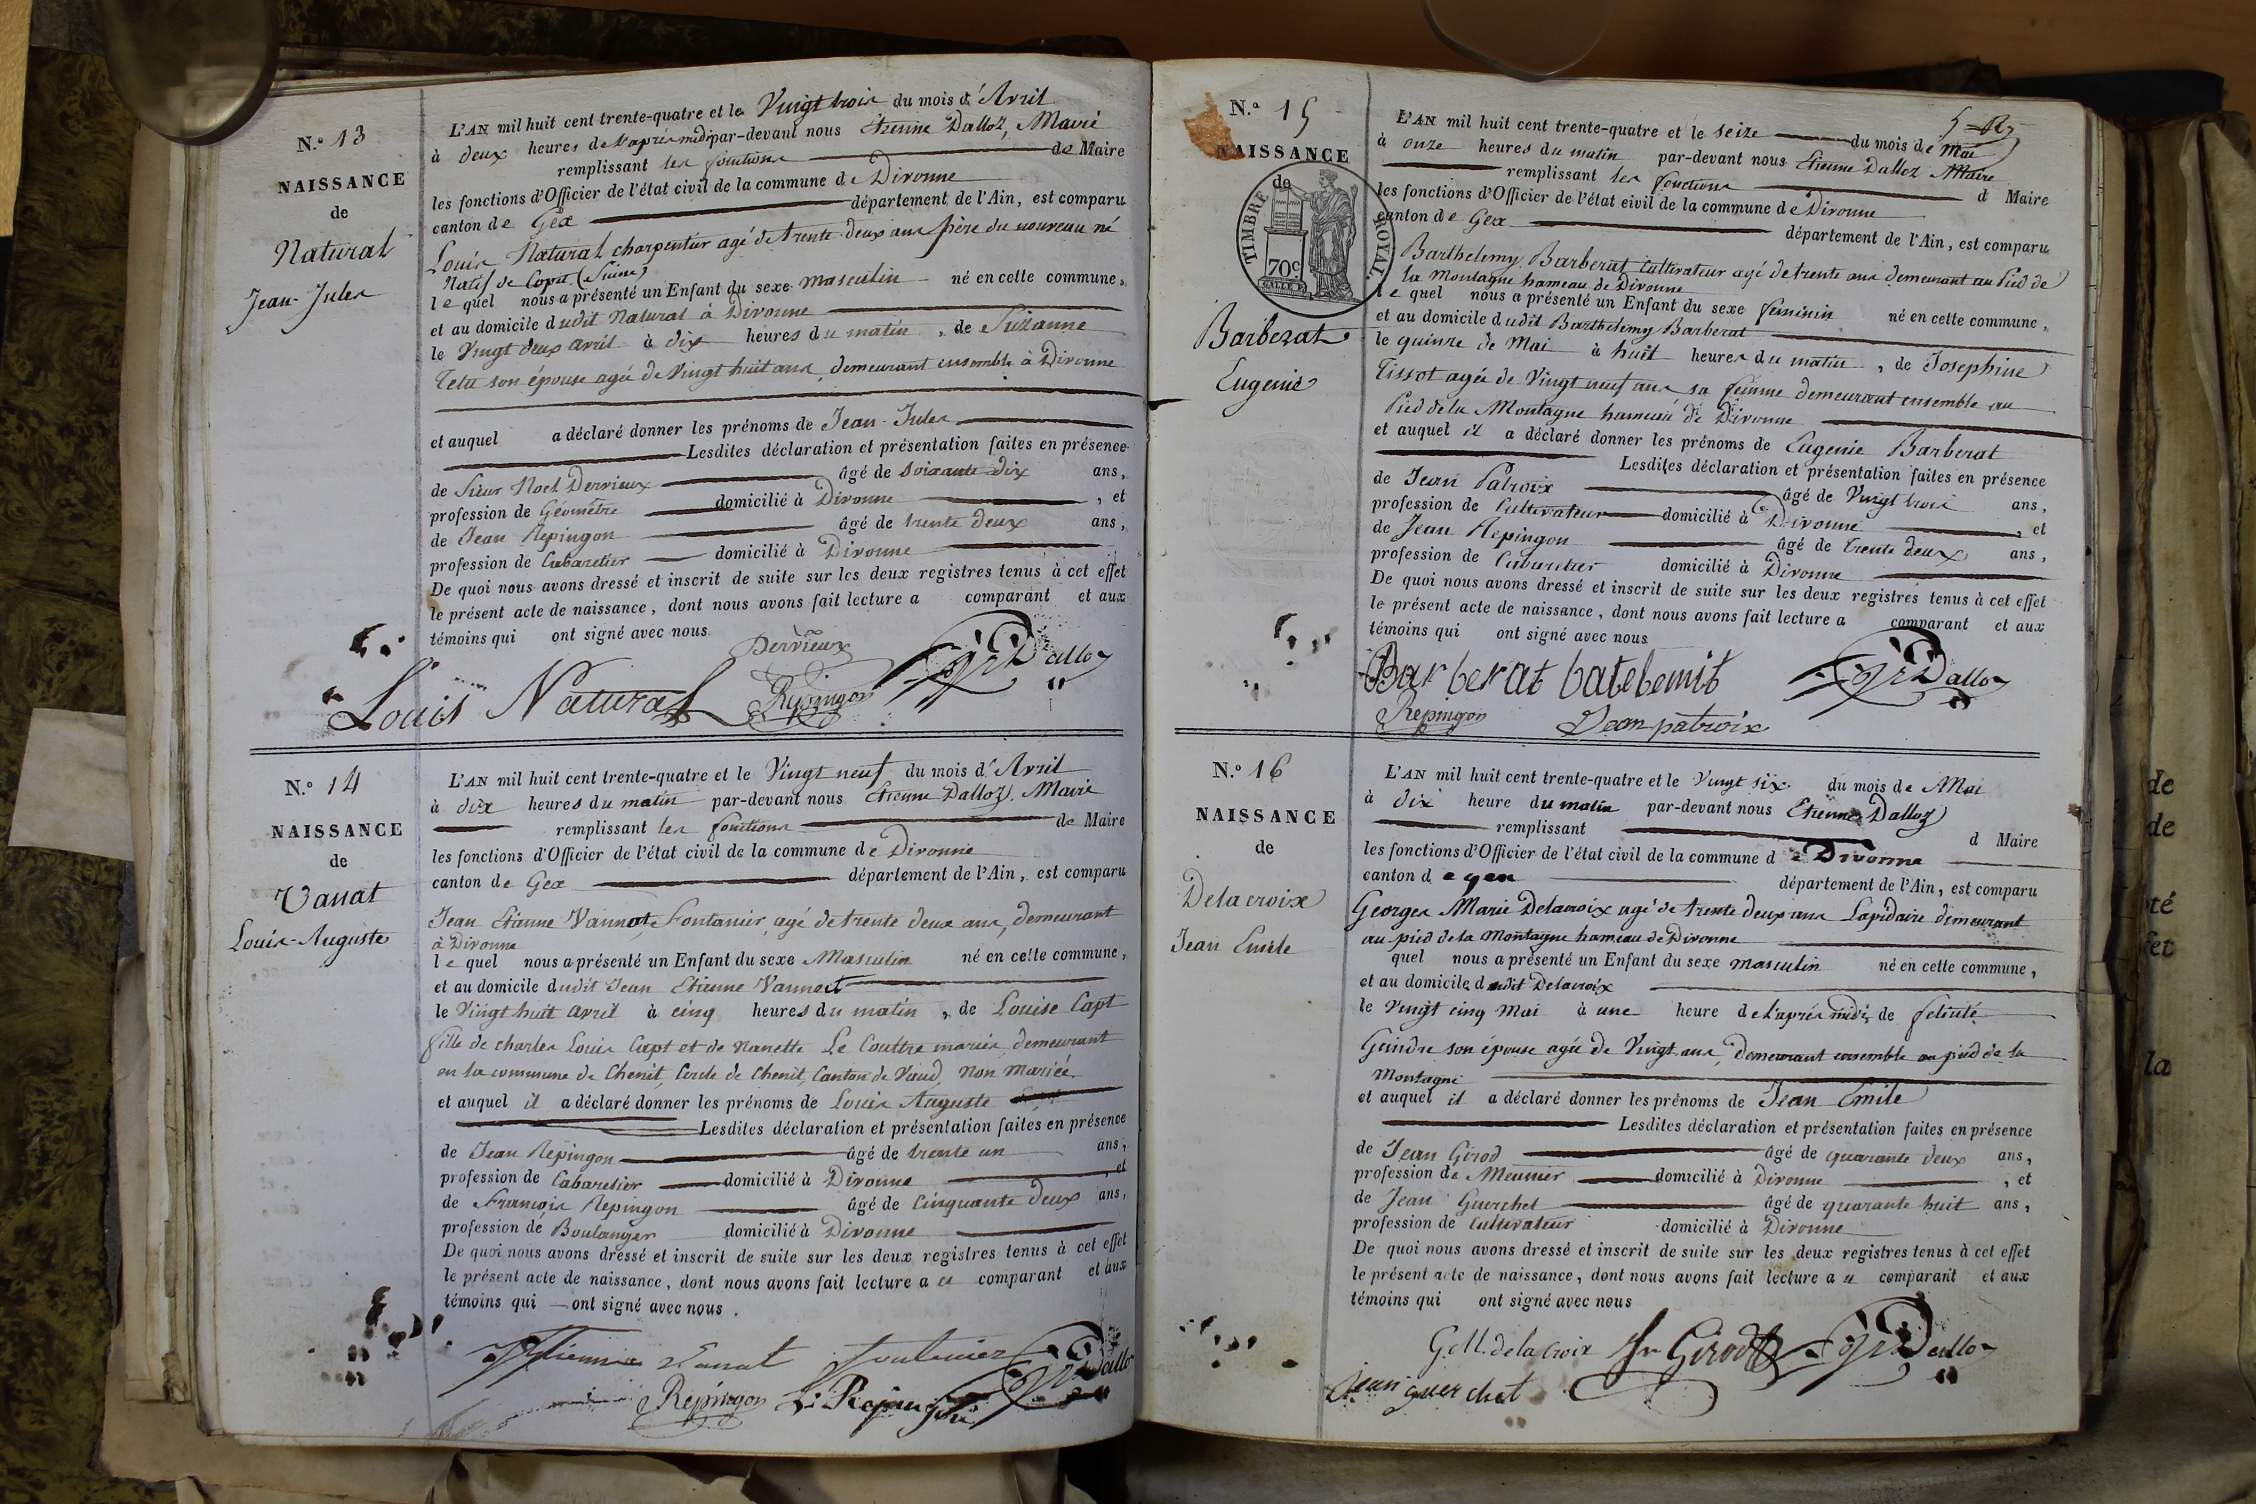 N.º 13
NAISSANCE
de
Natural
Jean-Jules
L'AN mil huit cent trente-quatre et le Vingt trois du mois d'Avril
à deux heures de l'après midi par-devant nous Etienne Dalloz, Maire
remplissant les fonctions de Maire
les fonctions d'Officier de l'état civil de la commune de Divonne
canton de Gex département de l'Ain, est comparu
Louis Natural charpentier agé de trente deux ans père du nouveau né
Natif de Copet (Suisse)
lequel nous a présenté un Enfant du sexe masculin né en cette commune,
et au domicile dudit Natural à Divonne
le Vingt deux avril à dix heures du matin, de Suzanne
Tetu son épouse agée de Vingt huit ans, demeurant ensemble à Divonne
et auquel a déclaré donner les prénoms de Jean-Jules
Lesdites déclaration et présentation faites en présence
de Sieur Noel Dervieux âgé de soixante dix ans,
profession de Géomètre domicilié à Divonne, et
de Jean Repingon âgé de trente deux ans,
profession de Cabaretier domicilié à Divonne
De quoi nous avons dressé et inscrit de suite sur les deux registres tenus à cet effet
le présent acte de naissance, dont nous avons fait lecture a comparant et aux
témoins qui ont signé avec nous
Dervieux
Louis Natural Repingon Dalloz
N.º 14
NAISSANCE
de
Vanat
Louis-Auguste
L'AN mil huit cent trente-quatre et le Vingt neuf du mois d'Avril
à dix heures du matin par-devant nous Etienne Dalloz, Maire
remplissant les fonctions de Maire
les fonctions d'Officier de l'état civil de la commune de Divonne
canton de Gex département de l'Ain, est comparu
Jean Etienne Vannat, Fontanier, agé de trente deux ans, demeurant
à Divonne
lequel nous a présenté un Enfant du sexe Masculin né en cette commune,
et au domicile dudit Jean Etienne Vannat
le Vingt huit avril à cinq heures du matin, de Louise Capt
fille de charles Louis Capt et de Nanette Le Couttre mariés, demeurant
en la commune de Chenit, Cercle de Chenit, Canton de Vaud, non mariée
et auquel il a déclaré donner les prénoms de Louis Auguste
Lesdites déclaration et présentation faites en présence
de Jean Repingon âgé de trente un ans,
profession de Cabaretier domicilié à Divonne, et
de François Repingon âgé de Cinquante deux ans,
profession de Boulanger domicilié à Divonne
De quoi nous avons dressé et inscrit de suite sur les deux registres tenus à cet effet
le présent acte de naissance, dont nous avons fait lecture a comparant et aux
témoins qui ont signé avec nous.
Etienne Vanat fontenier Dalloz
Repingon
N.º 15
NAISSANCE
de
TIMBRE ROYAL
70c.
Barberat
Eugenie
L'AN mil huit cent trente-quatre et le seize du mois de Mai
à onze heures du matin par-devant nous Etienne Dalloz Maire
remplissant les fonctions d Maire
les fonctions d'Officier de l'état civil de la commune de Divonne
canton de Gex département de l'Ain, est comparu
Barthelemy Barberat cultivateur agé de trente ans demeurant au Pied de
la Montagne hameau de Divonne
lequel nous a présenté un Enfant du sexe feminin né en cette commune,
et au domicile dudit Barthelemy Barberat
le quinze de Mai à huit heures du matin, de Josephine
Tissot agée de Vingt neuf ans sa femme demeurant ensemble au
Pied de la Montagne hameau de Divonne
et auquel il a déclaré donner les prénoms de Eugenie Barberat
Lesdites déclaration et présentation faites en présence
de Jean Patroix âgé de Vingt trois ans,
profession de Cultivateur domicilié à Divonne, et
de Jean Repingon âgé de trente deux ans,
profession de Cabaretier domicilié à Divonne
De quoi nous avons dressé et inscrit de suite sur les deux registres tenus à cet effet
le présent acte de naissance, dont nous avons fait lecture a comparant et aux
témoins qui ont signé avec nous
Barberat batelemit Dalloz
Repingon Jean patroix
N.º 16
NAISSANCE
de
Delacroix
Jean Emile
L'AN mil huit cent trente-quatre et le Vingt six du mois de Mai
à dix heure du matin par-devant nous Etienne Dalloz
remplissant d Maire
les fonctions d'Officier de l'état civil de la commune de Divonne
canton de gex département de l'Ain, est comparu
Georges Marie Delacroix agé de trente deux ans Lapidaire demeurant
au pied de la Montagne hameau de Divonne
quel nous a présenté un Enfant du sexe masculin né en cette commune,
et au domicile dudit Delacroix
le Vingt cinq Mai à une heure de l'après midi, de felicité
Geindre son épouse agée de Vingt ans, demeurant ensemble au pied de la
Montagne
et auquel il a déclaré donner les prénoms de Jean Emile
Lesdites déclaration et présentation faites en présence
de Jean Girod âgé de quarante deux ans,
profession de Meunier domicilié à Divonne, et
de Jean Guerchet âgé de quarante huit ans,
profession de Cultivateur domicilié à Divonne
De quoi nous avons dressé et inscrit de suite sur les deux registres tenus à cet effet
le présent acte de naissance, dont nous avons fait lecture a comparant et aux
témoins qui ont signé avec nous
G.M. delacroix Girod Dalloz
Jean guerchet
de
de
té
fet
la